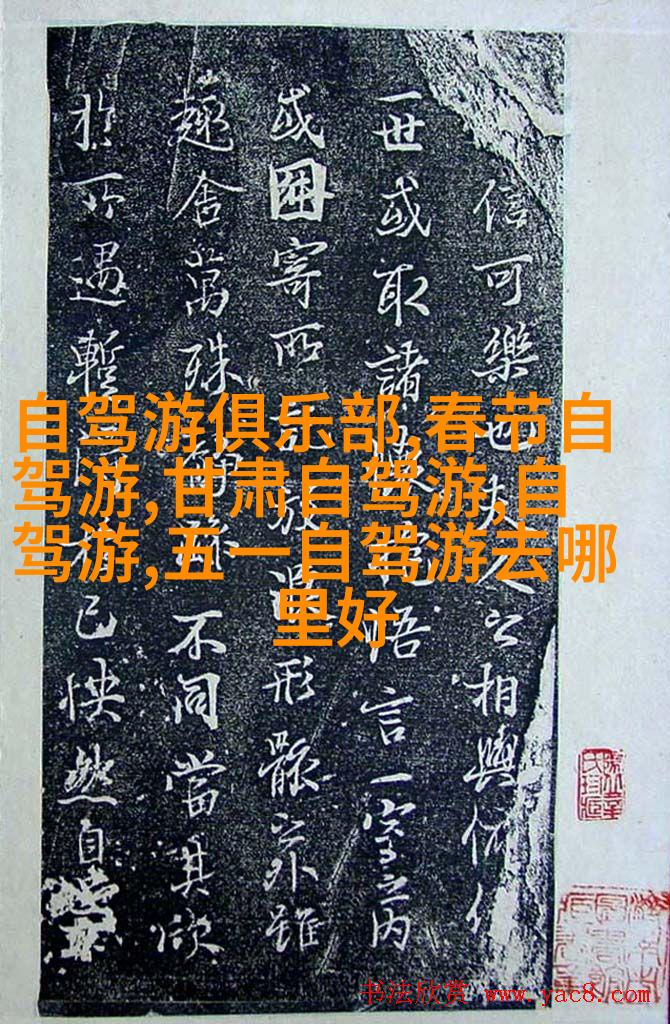 信可樂也夫人之相與俯仰
一世或取諸懷抱悟言一室之內
或因寄所託放浪形骸之外雖
趣舍萬殊靜躁不同當其欣
於所遇暫得於己怏然自
自驾游俱乐部,春节自
驾游,甘肃自驾游,自
驾游,五一自驾游去哪
里好
书法欣赏 www.yac8.com